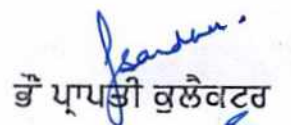 ਭੌਂ ਪ੍ਰਾਪਤੀ ਕੁਲੈਕਟਰ